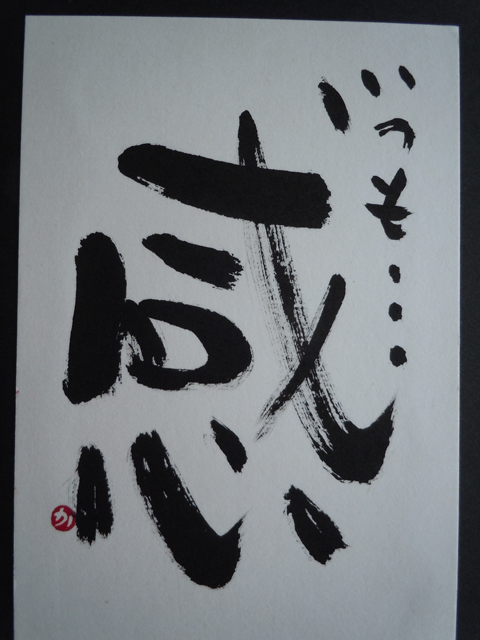 いつも・・・
感
か